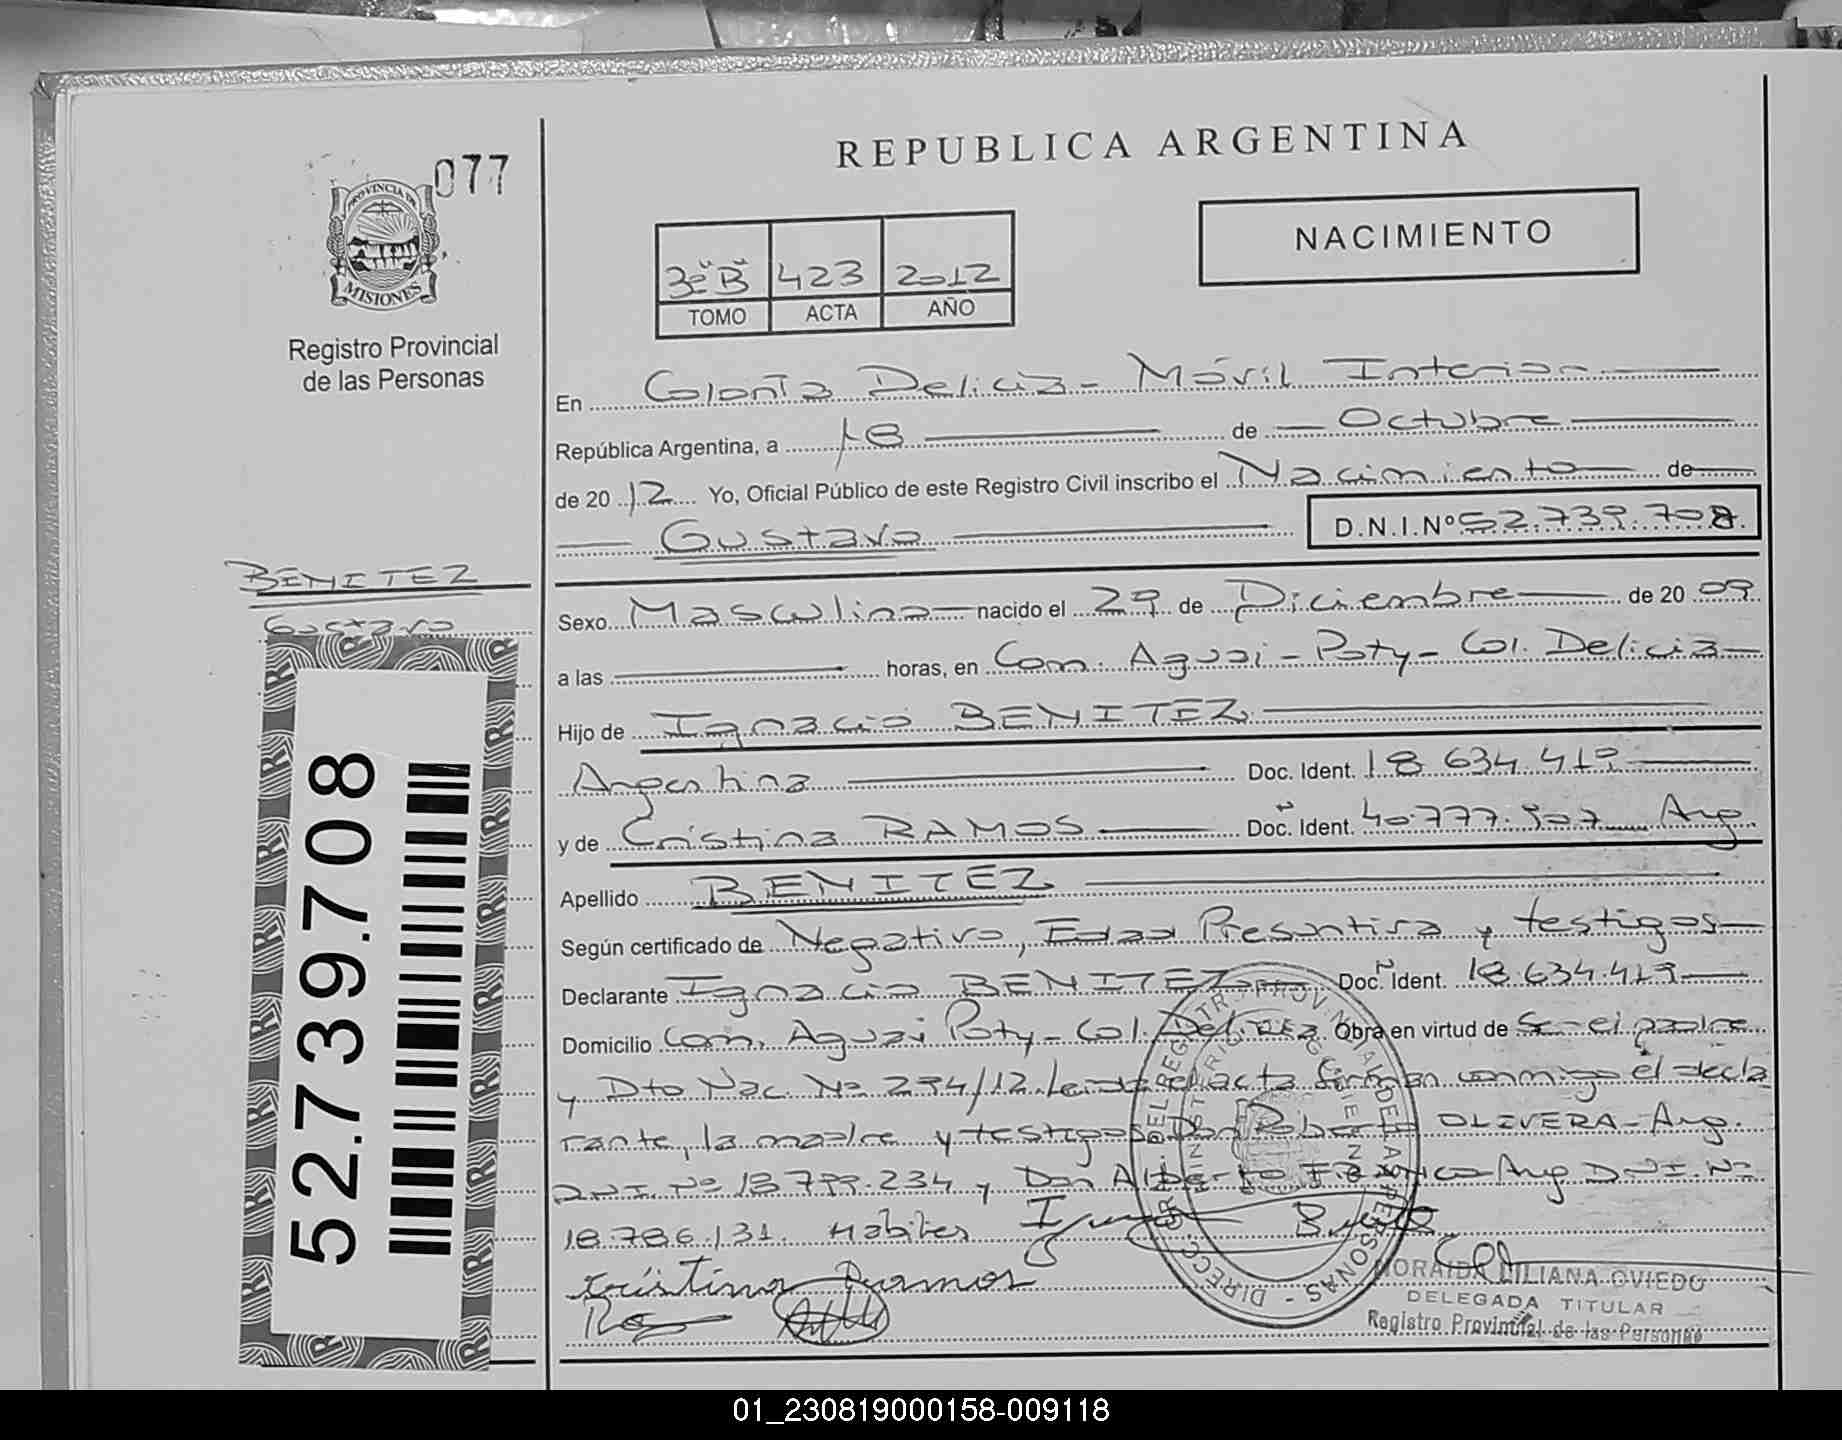 REPUBLICA ARGENTINA
077
PROVINCIA DE
MISIONES
Registro Provincial
de las Personas
NACIMIENTO
3º "B" 423 2012
TOMO ACTA AÑO
En Colonia Delicia - Móvil Interior
República Argentina, a 18 de Octubre
de 2012 Yo, Oficial Público de este Registro Civil inscribo el Nacimiento de
Gustavo D.N.I.Nº 52.739.708
BENITEZ
Gustavo
52.739.708
Sexo Masculino nacido el 29 de Diciembre de 2009
a las horas, en Com. Aguai-Poty- Col. Delicia
Hijo de Ignacio BENITEZ
Argentina Doc. Ident. 18.634.419
y de Cristina RAMOS Doc. Ident. 40.777.507 Arg.
Apellido BENITEZ
Según certificado de Negativo, Edad Presuntiva y testigos
Declarante Ignacio BENITEZ Doc. Ident. 18.634.419
Domicilio Com. Aguai Poty- Col. Delicia Obra en virtud de Ser el padre
y Dto Nac. Nº 234/12. Leida el acta firman conmigo el decla
rante, la madre y testigos Don Roberto OLIVERA-Arg.
D.N.I. Nº 13.799.234 y Don Alberto Arg D.N.I. Nº
18.786.131. Habiles
Cristina Ramos
MORAIDA LILIANA OVIEDO
DELEGADA TITULAR
Registro Provincial de las Personas
01_230819000158-009118